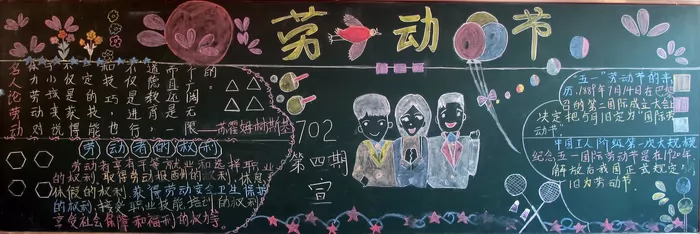 劳动节
名人论劳动
——苏霍姆林斯基
劳动者的权利
劳动者享有平等就业和选择职业
的权利、取得劳动报酬的权利、休息
休假的权利、获得劳动安全卫生保护
的权利、接受职业技能培训的权利、
享受社会保障和福利的权力等
702
第四期
宣
"五一"劳动节的来
历:1889年7月14日在巴
召的第二国际成立大会
决定把5月1日定为"国际劳
动节"
中国工人阶级第一次大规模
纪念五一国际劳动节是在1920年
解放后我国正式规定5
月1日为劳动节.